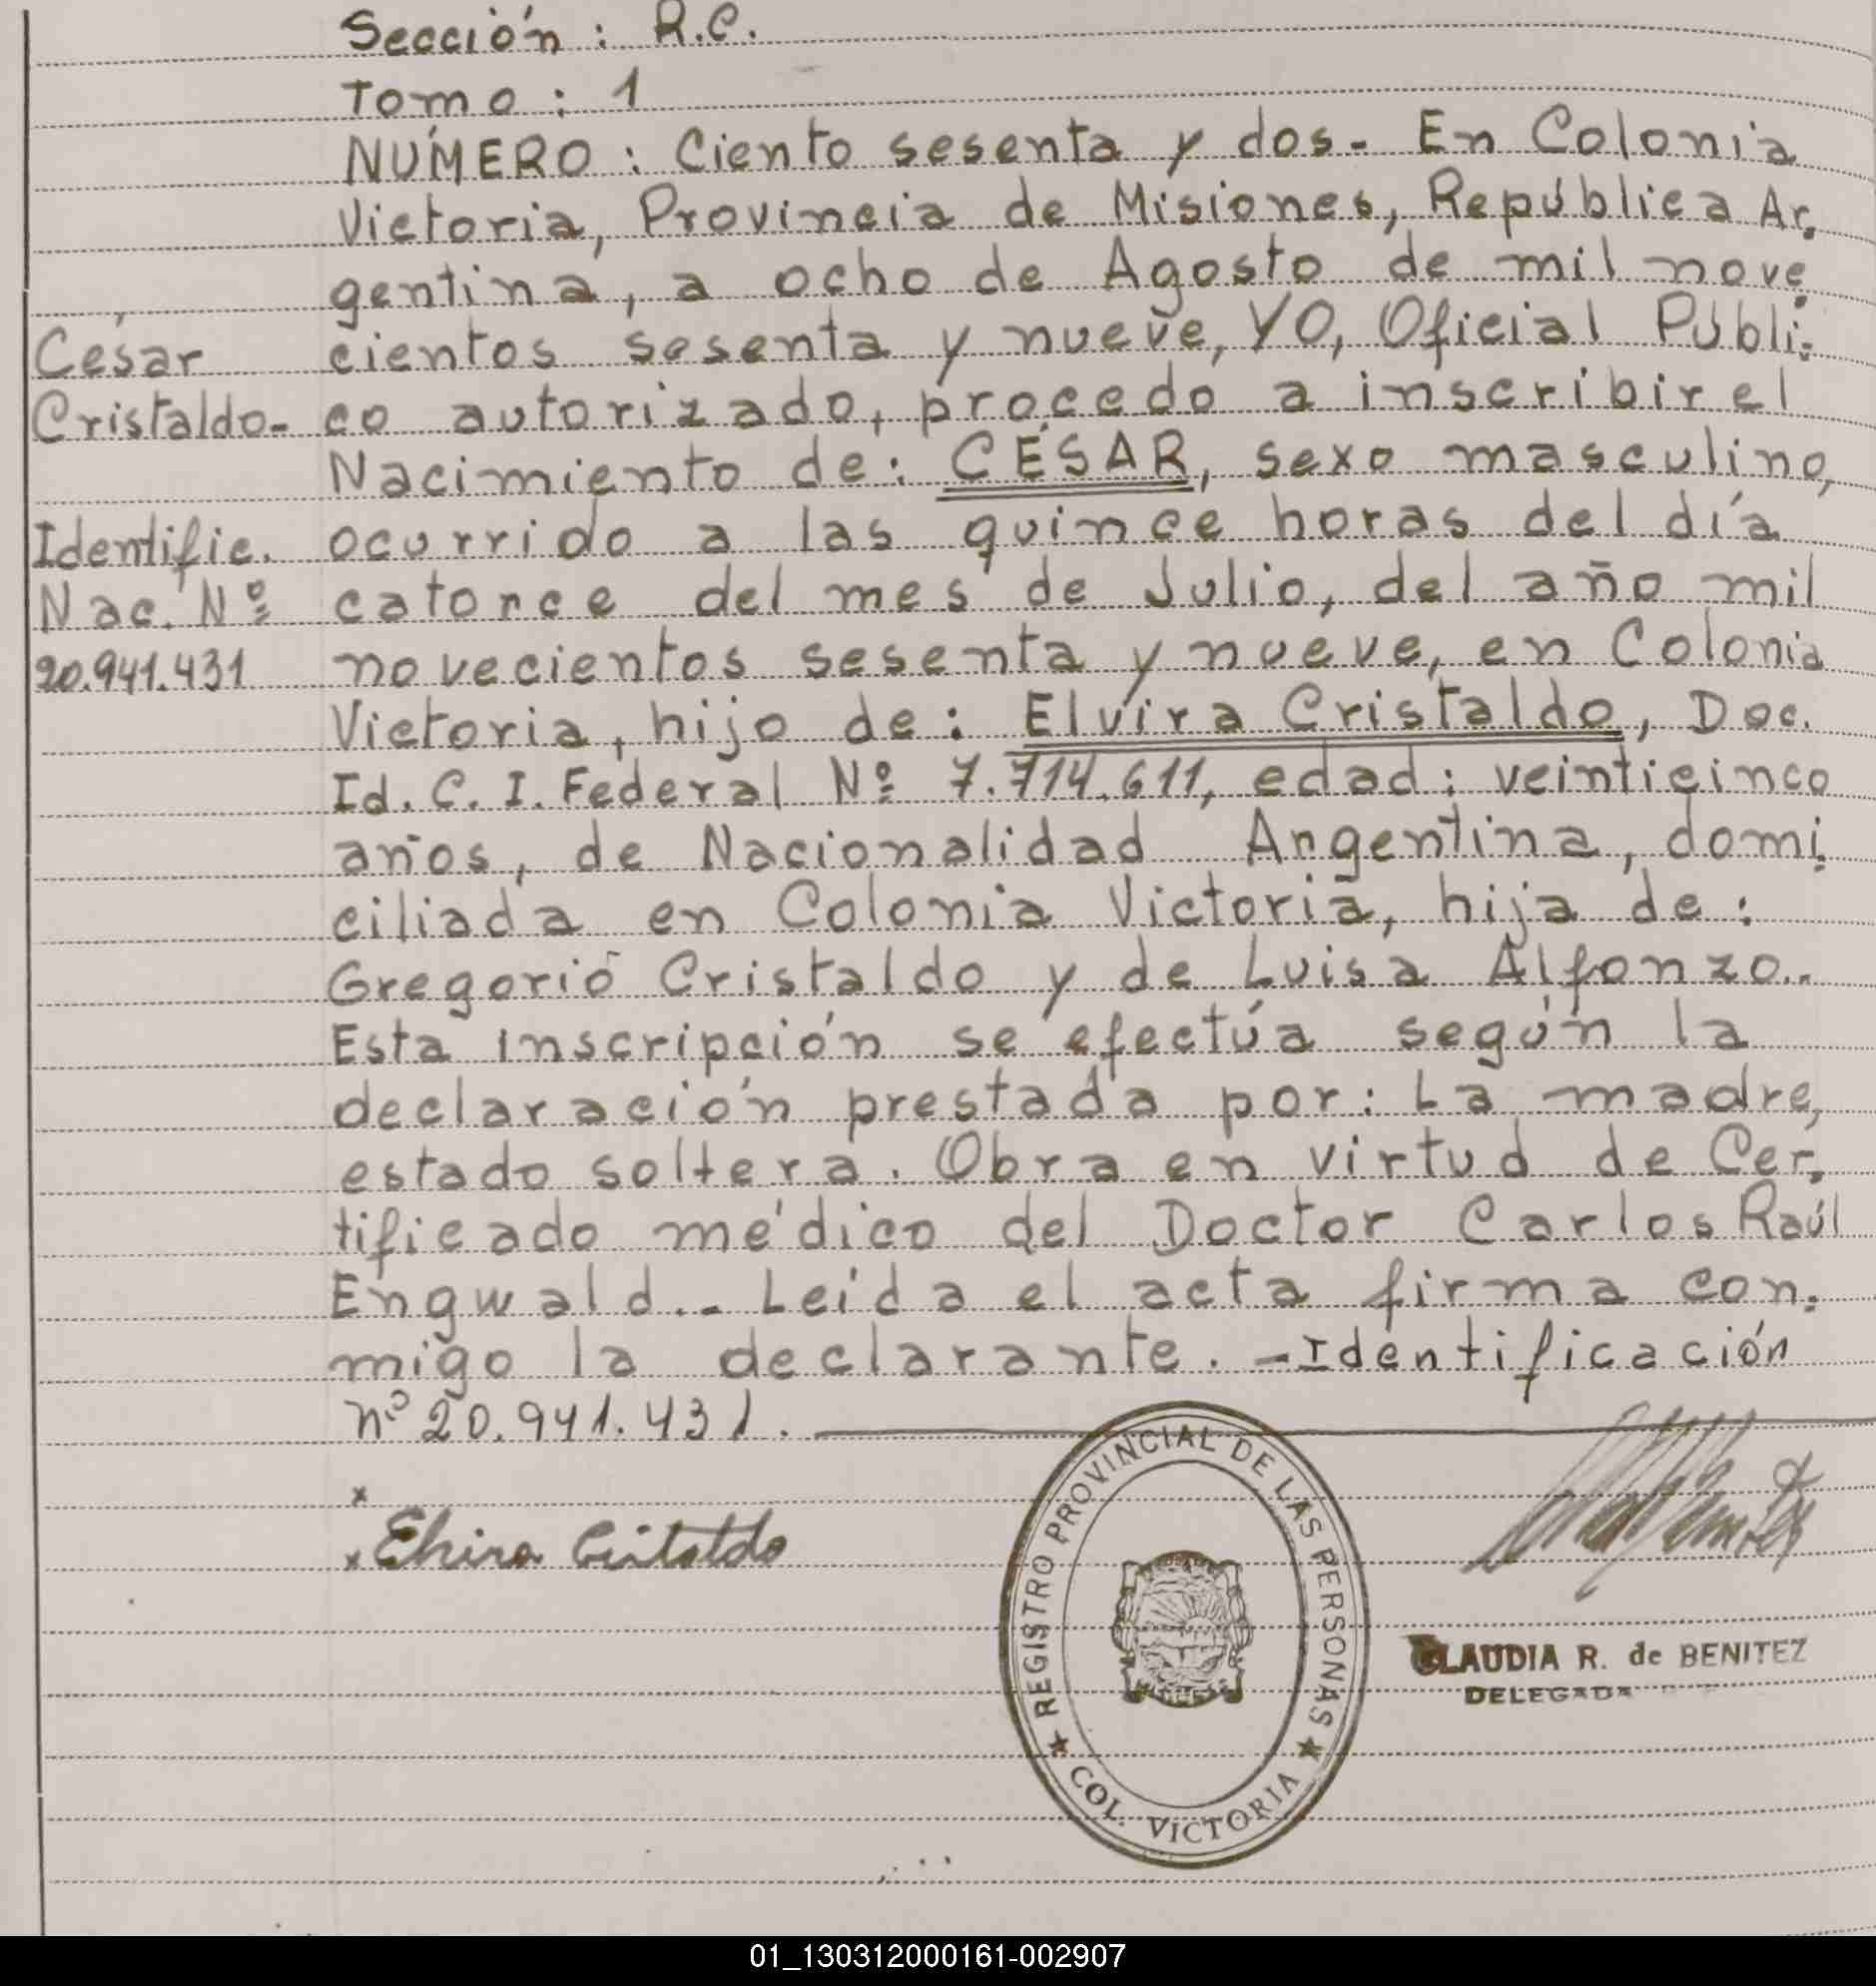 Sección: R.C.
Tomo: 1
NÚMERO: Ciento sesenta y dos- En Colonia
Victoria, Provincia de Misiones, República Ar-
gentina, a ocho de Agosto de mil nove-
cientos sesenta y nueve, YO, Oficial Públi-
co autorizado, procedo a inscribir el
Nacimiento de: CÉSAR, sexo masculino,
ocurrido a las quince horas del día
catorce del mes de Julio, del año mil
novecientos sesenta y nueve, en Colonia
Victoria, hijo de: Elvira Cristaldo, Doc.
Id. C. I. Federal Nº 7.714.611, edad: veinticinco
años, de Nacionalidad Argentina, domi-
ciliada en Colonia Victoria, hija de:
Gregorio Cristaldo y de Luisa Alfonzo..
Esta inscripción se efectúa según la
declaración prestada por: La madre,
estado soltera. Obra en virtud de Cer-
tificado médico del Doctor Carlos Raúl
Engwald.- Leída el acta firma con-
migo la declarante. -Identificación
nº 20.941.431.
César
Cristaldo-
Identific.
Nac. Nº
20.941.431
x
x Elvira Cristaldo
REGISTRO PROVINCIAL DE LAS PERSONAS
COL. VICTORIA
CLAUDIA R. de BENITEZ
DELEGADA
01_130312000161-002907